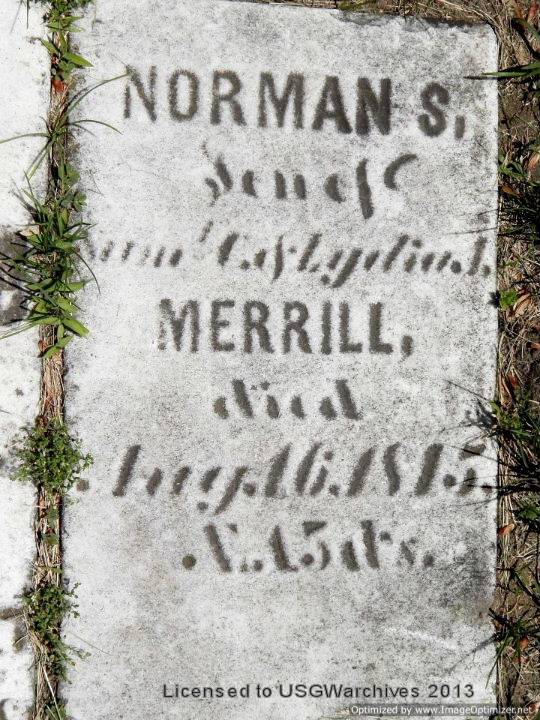 NORMAN S.
Son of
Sam'l C. & Lydia J.
MERRILL,
died
Aug. 16. 1845.
Æ. 45 ds.
Licensed to USGWarchives 2013
Optimized by www.ImageOptimizer.net